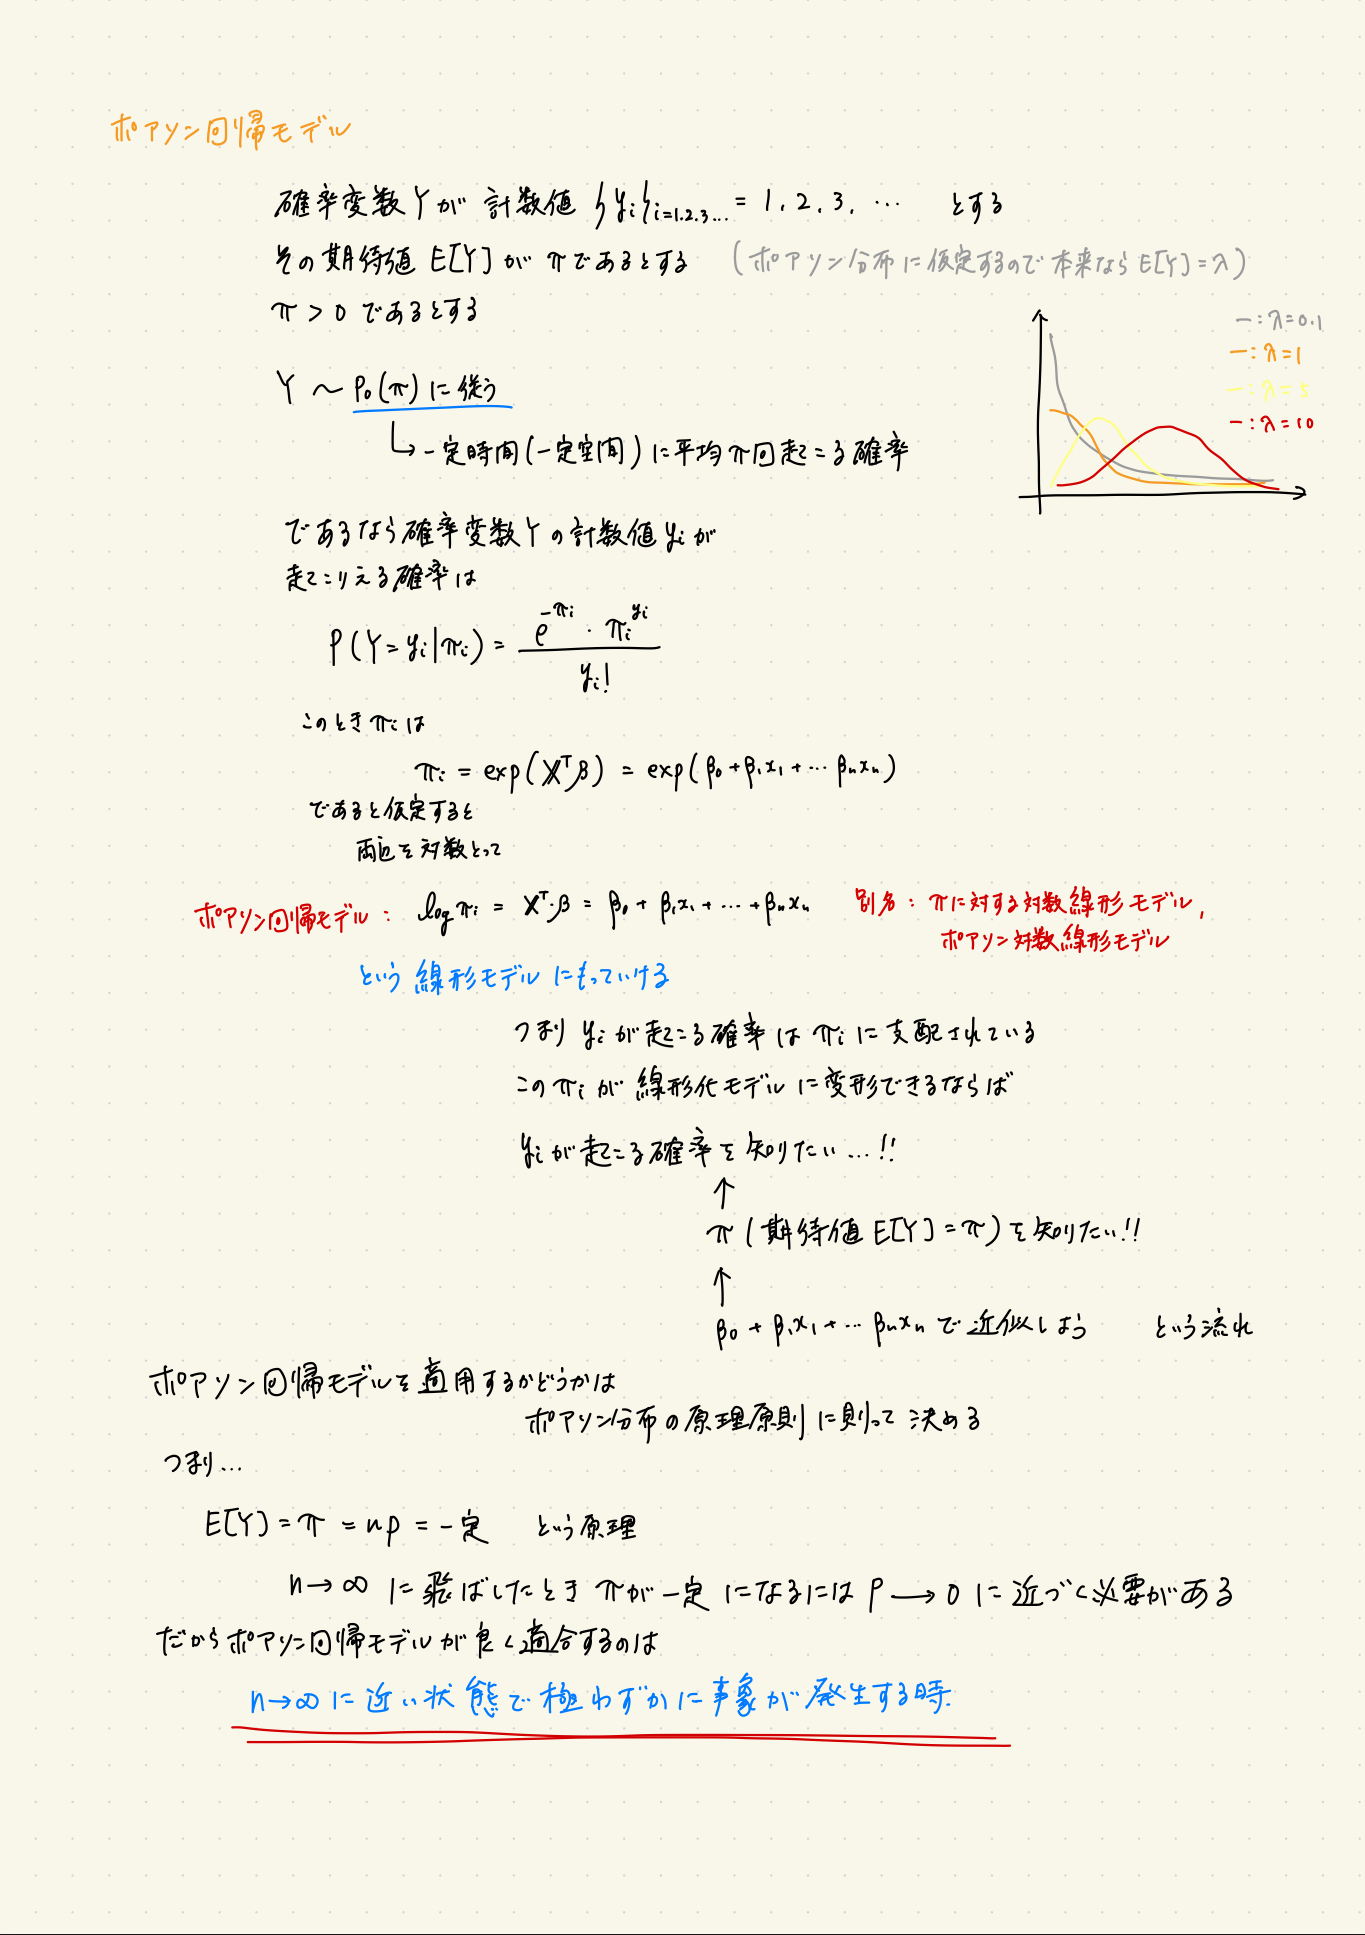 ポアソン回帰モデル
確率変数Yが 計数値 {yi}i=1.2.3... = 1. 2. 3. … とする
その期待値 E[Y] が πであるとする (ポアソン分布に仮定するので本来なら E[Y]=λ)
π > 0 であるとする
ー:λ=0.1
ー:λ=1
ー:λ=5
ー:λ=10
Y ～ Po(π) に従う
↳ 一定時間(一定空間)に平均π回起こる確率
であるなら確率変数Yの計数値 yi が
起こりえる確率は
P(Y=yi|πi) = e^-πi · πi^yi / yi!
このとき πi は
πi = exp(X^Tβ) = exp(β0+β1x1+…βnxn)
であると仮定すると
両辺を対数とって
ポアソン回帰モデル: log πi = X^T·β = β0 + β1x1 + … + βnxn 別名: πに対する対数線形モデル,
ポアソン対数線形モデル
という線形モデルにもっていける
つまり yi が起こる確率は πi に支配されている
この πi が 線形化モデルに変形できるならば
yi が起こる確率を知りたい…!!
↑
π (期待値 E[Y]=π) を知りたい!!
↑
β0 + β1x1 + … βnxn で近似しよう という流れ
ポアソン回帰モデルを適用するかどうかは
ポアソン分布の原理原則に則って決める
つまり…
E[Y] = π = np = 一定 という原理
n→∞ に飛ばしたとき πが一定になるには P→0 に近づく必要がある
だからポアソン回帰モデルが良く適合するのは
n→∞に近い状態で極わずかに事象が発生する時.